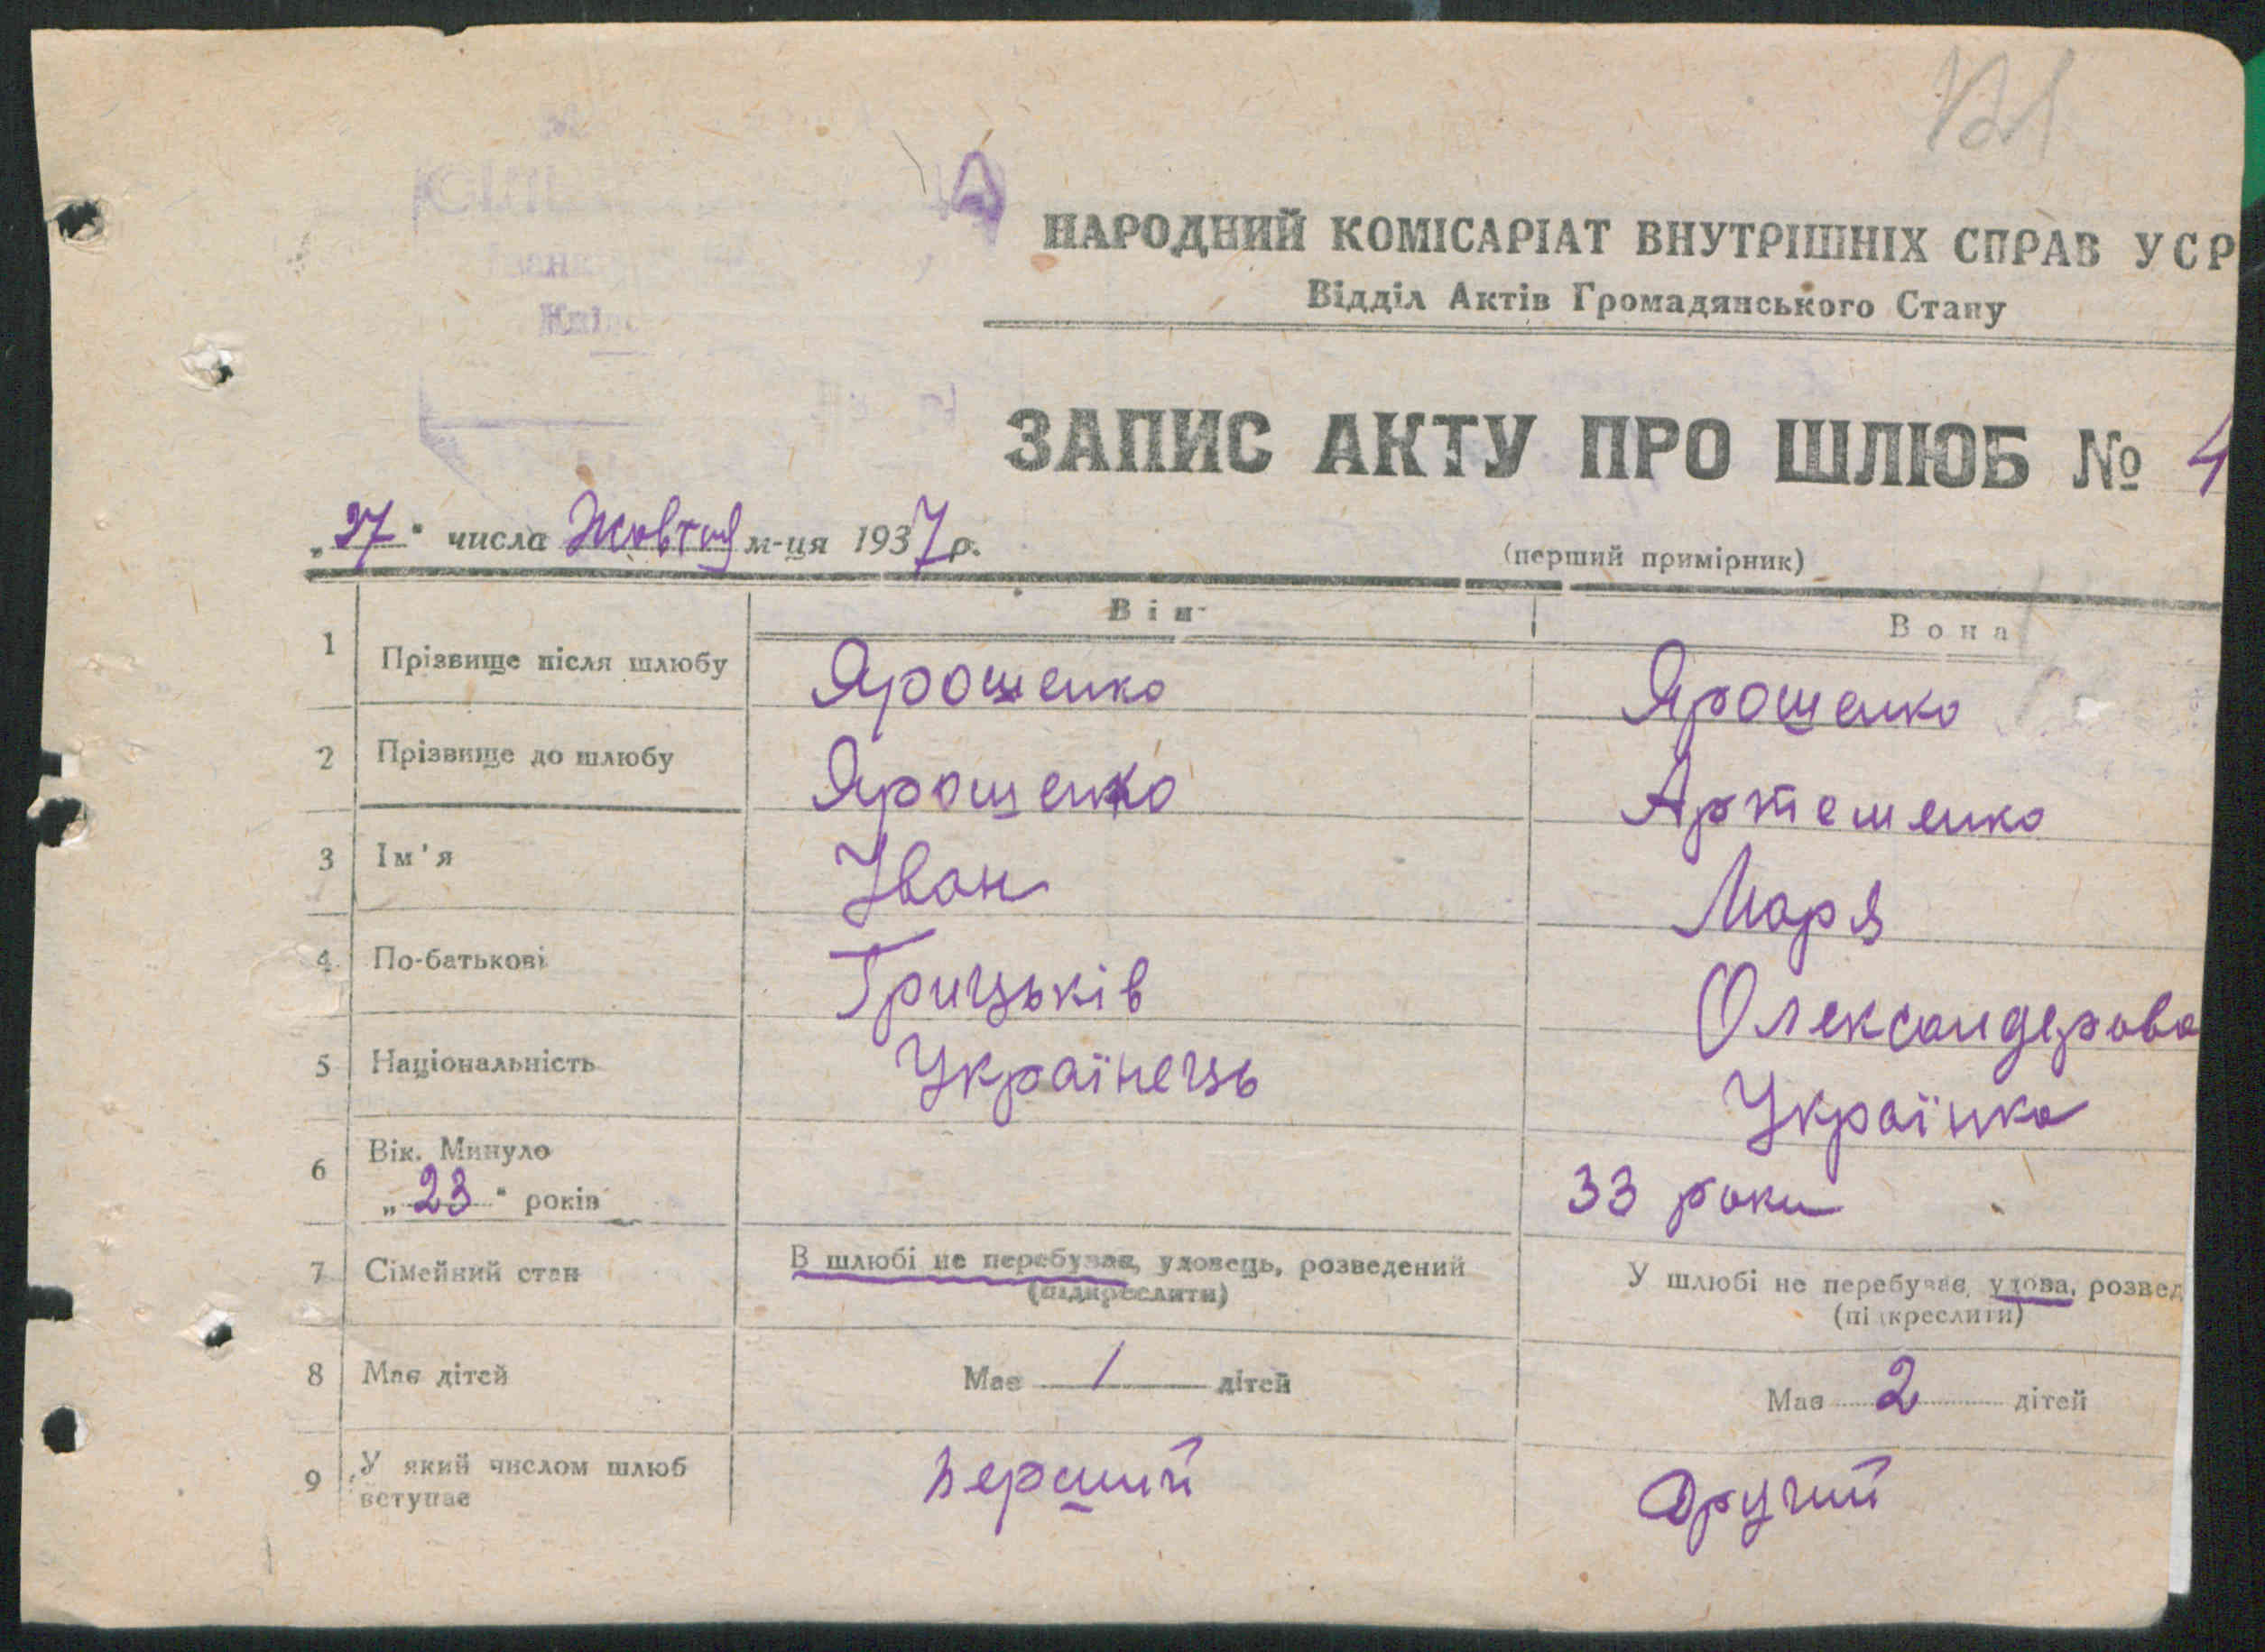 121
НАРОДНИЙ КОМІСАРІАТ ВНУТРІШНІХ СПРАВ УСР
Відділ Актів Громадянського Стану
ЗАПИС АКТУ ПРО ШЛЮБ № 4
„27“ числа Жовтня м-ця 1937 р.
(перший примірник)
Він Вона
1 Прізвище після шлюбу Ярошенко Ярошенко
2 Прізвище до шлюбу Ярошенко Артеменко
3 Ім'я Іван Маря
4 По-батькові Грицьків Олександерова
5 Національність Українець Українка
6 Вік. Минуло
„23“ років 33 роки
7 Сімейний стан В шлюбі не перебував, удовець, розведений У шлюбі не перебував, удова, розвед
(підкреслити) (підкреслити)
8 Має дітей Має 1 дітей Має 2 дітей
9 У який числом шлюб
вступає перший другий